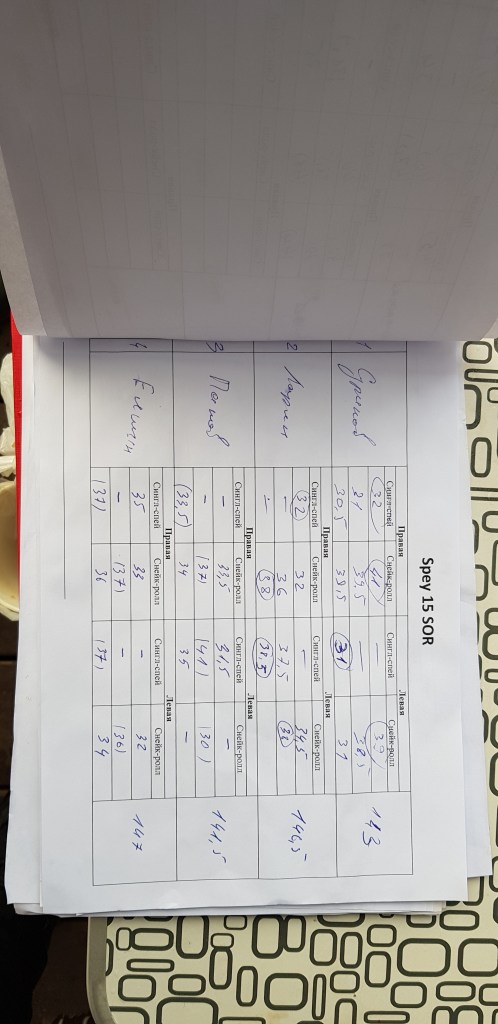 Spey 15 SOR
Правая Левая
Сингл-спей Снейк-ролл Сингл-спей Снейк-ролл
1 (32) (41) — (39) 143
31 39,5 — 38,5
30,5 39,5 (31) 31
Правая Левая
Сингл-спей Снейк-ролл Сингл-спей Снейк-ролл
2 Ларин (32) 32 — 34,5 146,5
— 36 37,5 (38)
— (38) (38,5)
Правая Левая
Сингл-спей Снейк-ролл Сингл-спей Снейк-ролл
3 — 33,5 31,5 — 141,5
— (37) (41) (30)
(33,5) 34 35 —
Правая Левая
Сингл-спей Снейк-ролл Сингл-спей Снейк-ролл
4 35 33 — 32 147
— (37) — (36)
(37) 36 (37) 34